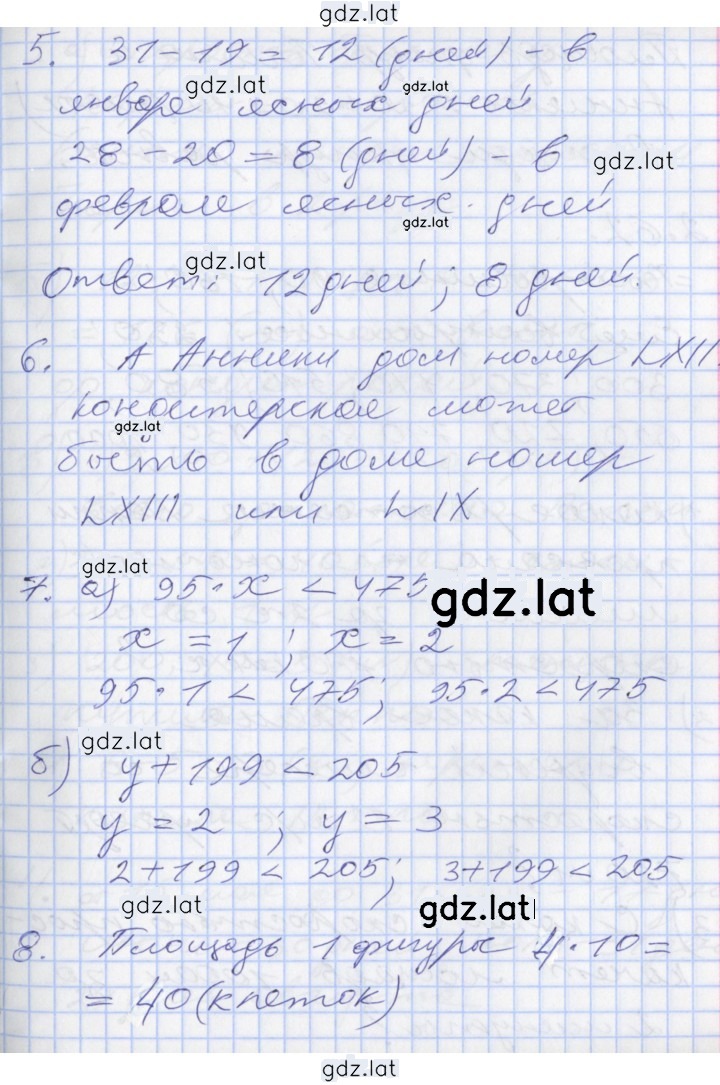 gdz.lat
5. 31 - 19 = 12 (дней) - в
gdz.lat gdz.lat
январе ясных дней
28 - 20 = 8 (дней) - в
gdz.lat
феврале ясных дней
gdz.lat
gdz.lat
Ответ: 12 дней; 8 дней.
6. А Анники дом номер LXIII.
кондитерская может
gdz.lat
быть в доме номер
LXIII или LIX
gdz.lat
7. а) 95 · x < 475
gdz.lat
x = 1 ; x = 2
95 · 1 < 475; 95 · 2 < 475
gdz.lat
б) y + 199 < 205
y = 2 ; y = 3
2 + 199 < 205; 3 + 199 < 205
gdz.lat gdz.lat
8. Площадь 1 фигуры 4 · 10 =
= 40 (клеток)
gdz.lat
gdz.lat